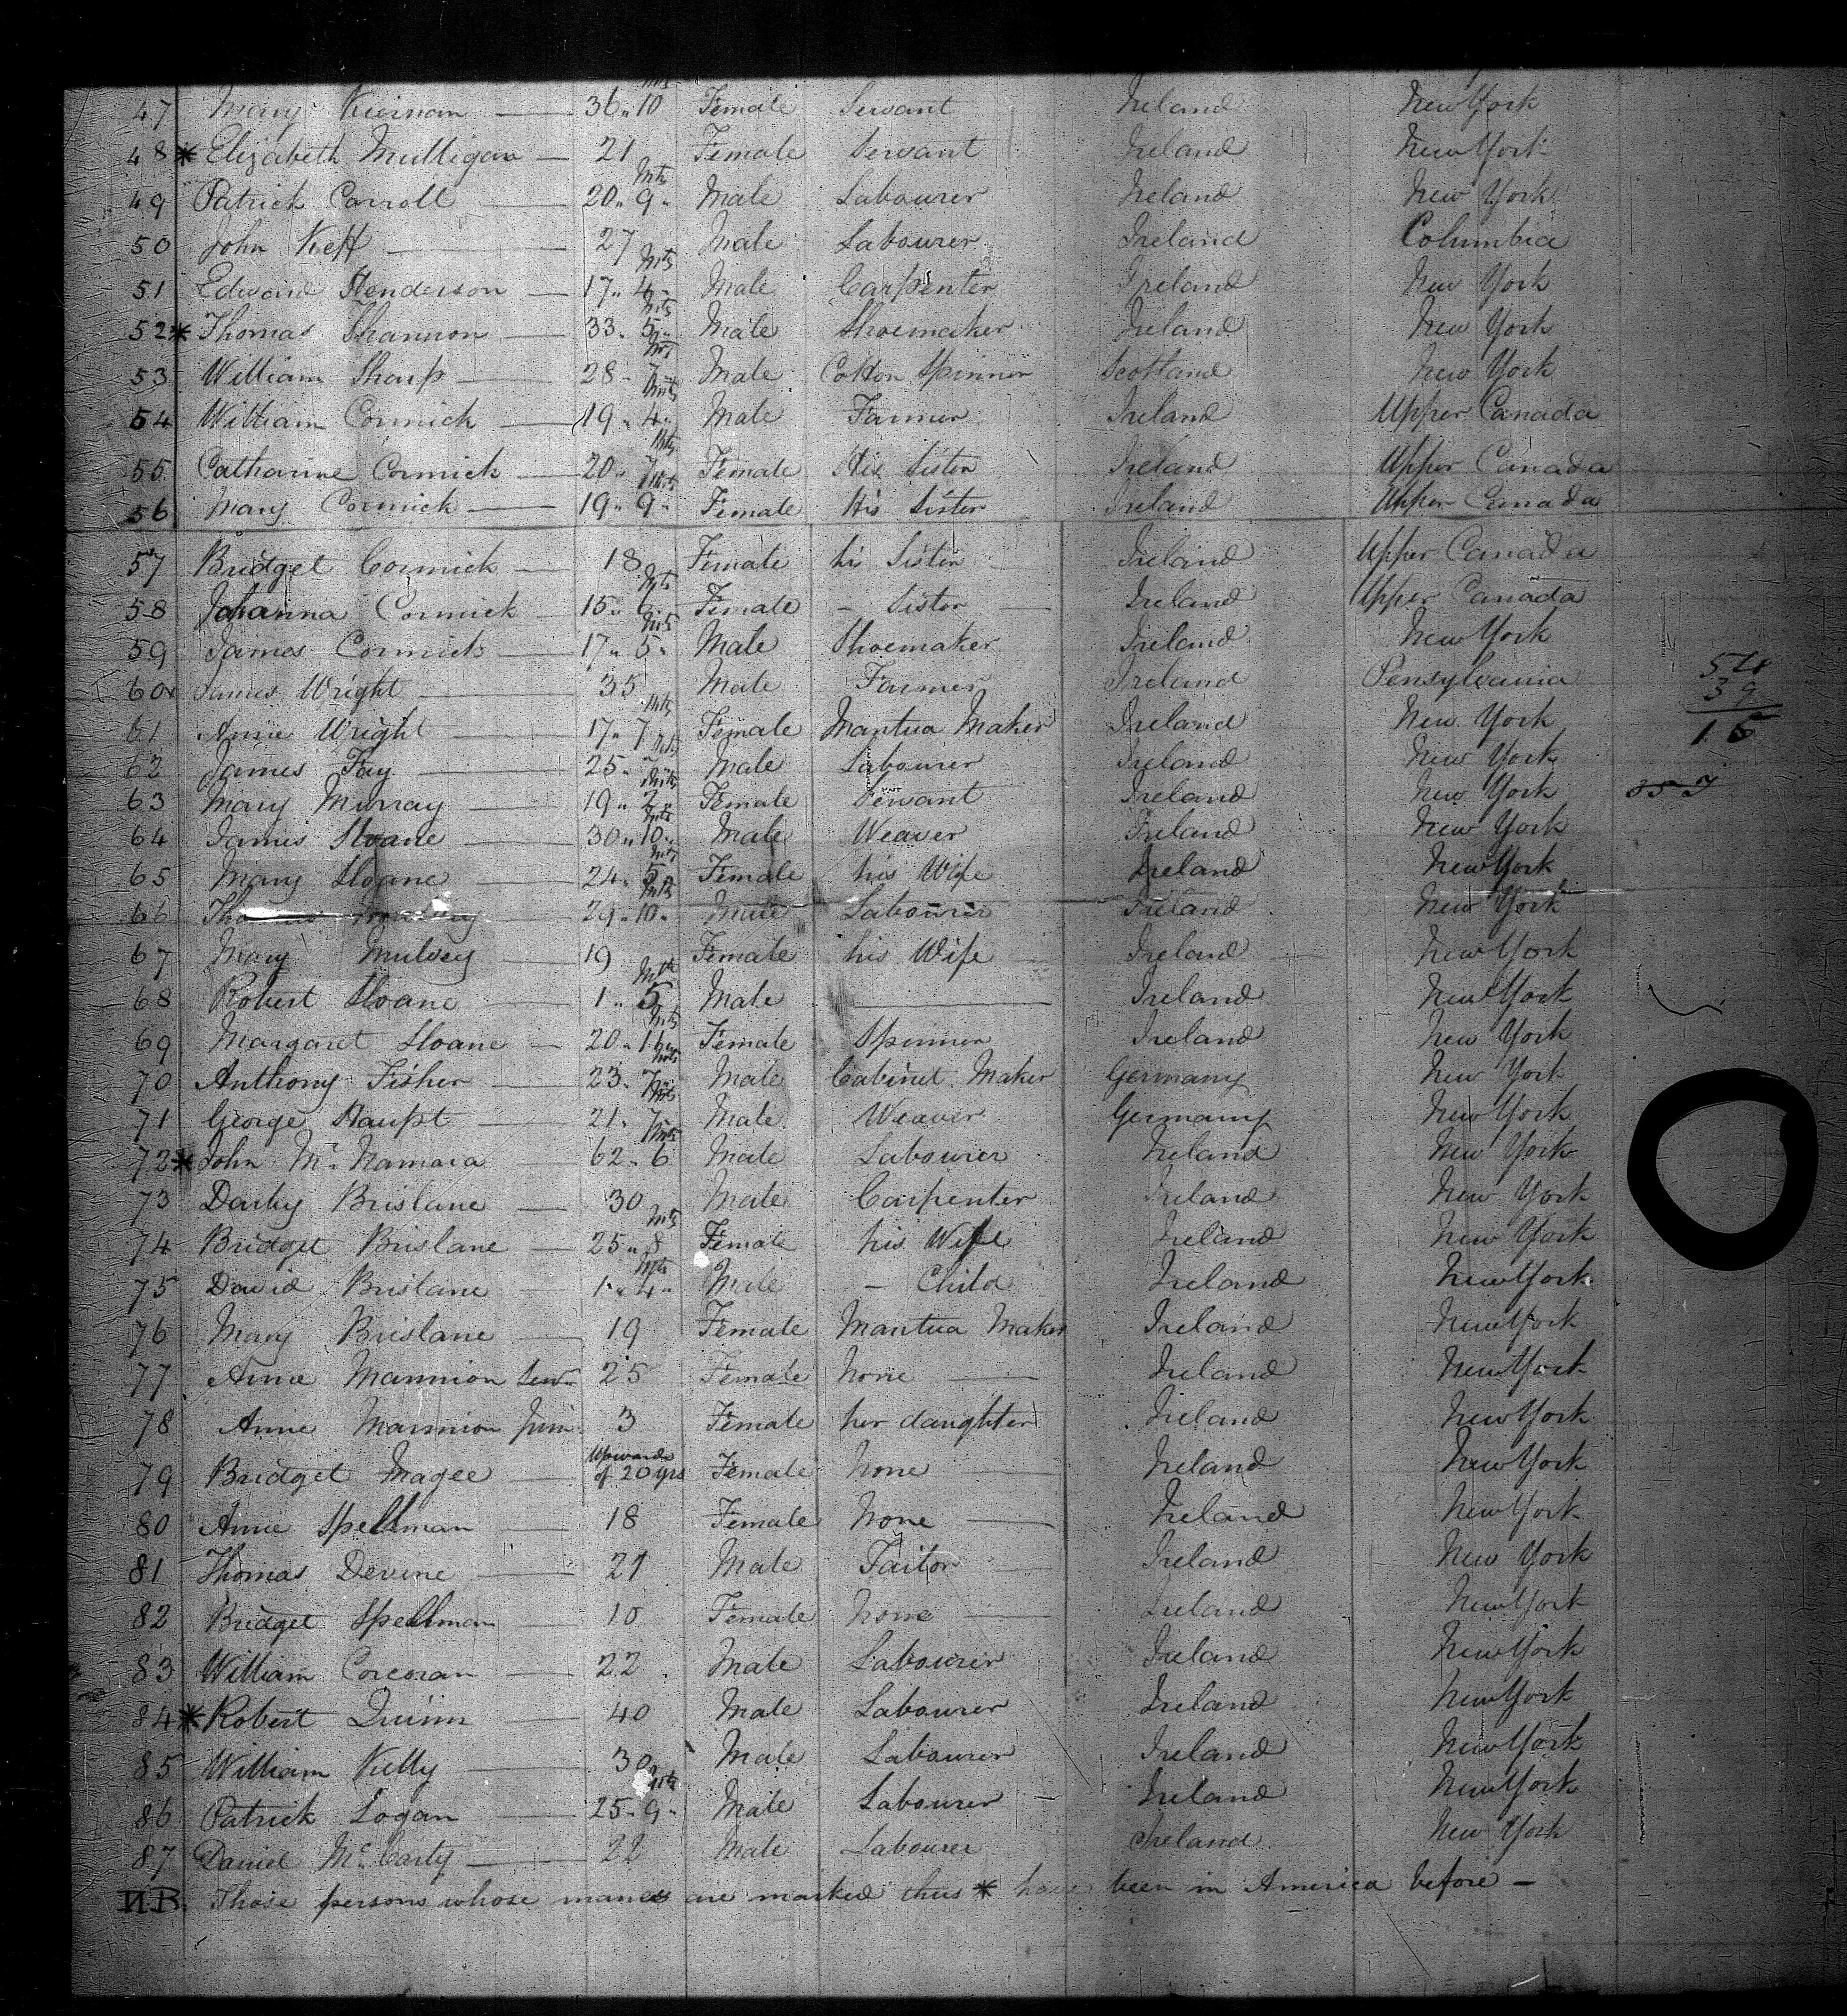 47 Mary Kiernan 36 " 10 mts Female Servant Ireland New York
48 * Elizabeth Mulligan 21 Female Servant Ireland New York
49 Patrick Carroll 20 " 9 " mts Male Labourer Ireland New York
50 John Keff 27 Male Labourer Ireland Columbia
51 Edward Henderson 17 " 4 " mts Male Carpenter Ireland New York
52 * Thomas Shannon 33 " 5 " mts Male Shoemaker Ireland New York
53 William Sharp 28 " 7 " mts Male Cotton Spinner Scotland New York
54 William Cormick 19 " 4 " mts Male Farmer Ireland Upper Canada
55 Catharine Cormick 20 " 7 " mts Female His Sister Ireland Upper Canada
56 Mary Cormick 19 " 9 " mts Female His Sister Ireland Upper Canada
57 Bridget Cormick 18 Female his Sister Ireland Upper Canada
58 Johanna Cormick 15 " mts Female - Sister Ireland Upper Canada
59 James Cormick 17 " 5 " mts Male Shoemaker Ireland New York
60 James Wright 35 Male Farmer Ireland Pensylvania
61 Anne Wright 17 " 7 mts Female Mantua Maker Ireland New York
62 James Fay 25 " mts Male Labourer Ireland New York
63 Mary Murray 19 " 2 " mts Female Servant Ireland New York
64 James Sloane 30 " 10 " mts Male Weaver Ireland New York
65 Mary Sloane 24 " 5 " mts Female his Wife Ireland New York
66 29 " 10 " mts Male Labourer Ireland New York
67 Mary Mulvey 19 Female his Wife Ireland New York
68 Robert Sloane 1 " 5 mts Male Ireland New York
69 Margaret Sloane 20 " mts Female Spinner Ireland New York
70 Anthony Fisher 23 " 7 " mts Male Cabinet Maker Germany New York
71 George Haupt 21 " 7 " mts Male Weaver Germany New York
72 * John McNamara 62 " 6 mts Male Labourer Ireland New York
73 Darby Brislane 30 Male Carpenter Ireland New York
74 Bridget Brislane 25 " 8 mts Female his Wife Ireland New York
75 David Brislane 1 " 4 " mts Male - Child Ireland New York
76 Mary Brislane 19 Female Mantua Maker Ireland New York
77 Anne Mannion Senr 25 Female None Ireland New York
78 Anne Mannion Junr 3 Female her daughter Ireland New York
79 Bridget Magee Upwards of 20 yrs Female None Ireland New York
80 Anne Spellman 18 Female None Ireland New York
81 Thomas Devine 21 Male Tailor Ireland New York
82 Bridget Spellman 10 Female none Ireland New York
83 William Corcoran 22 Male Labourer Ireland New York
84 * Robert Quinn 40 Male Labourer Ireland New York
85 William Kelly 30 Male Labourer Ireland New York
86 Patrick Logan 25 " 9 " mts Male Labourer Ireland New York
87 Daniel McCarty 22 Male Labourer Ireland New York
N.B. Those persons whose names are marked thus * have been in America before -